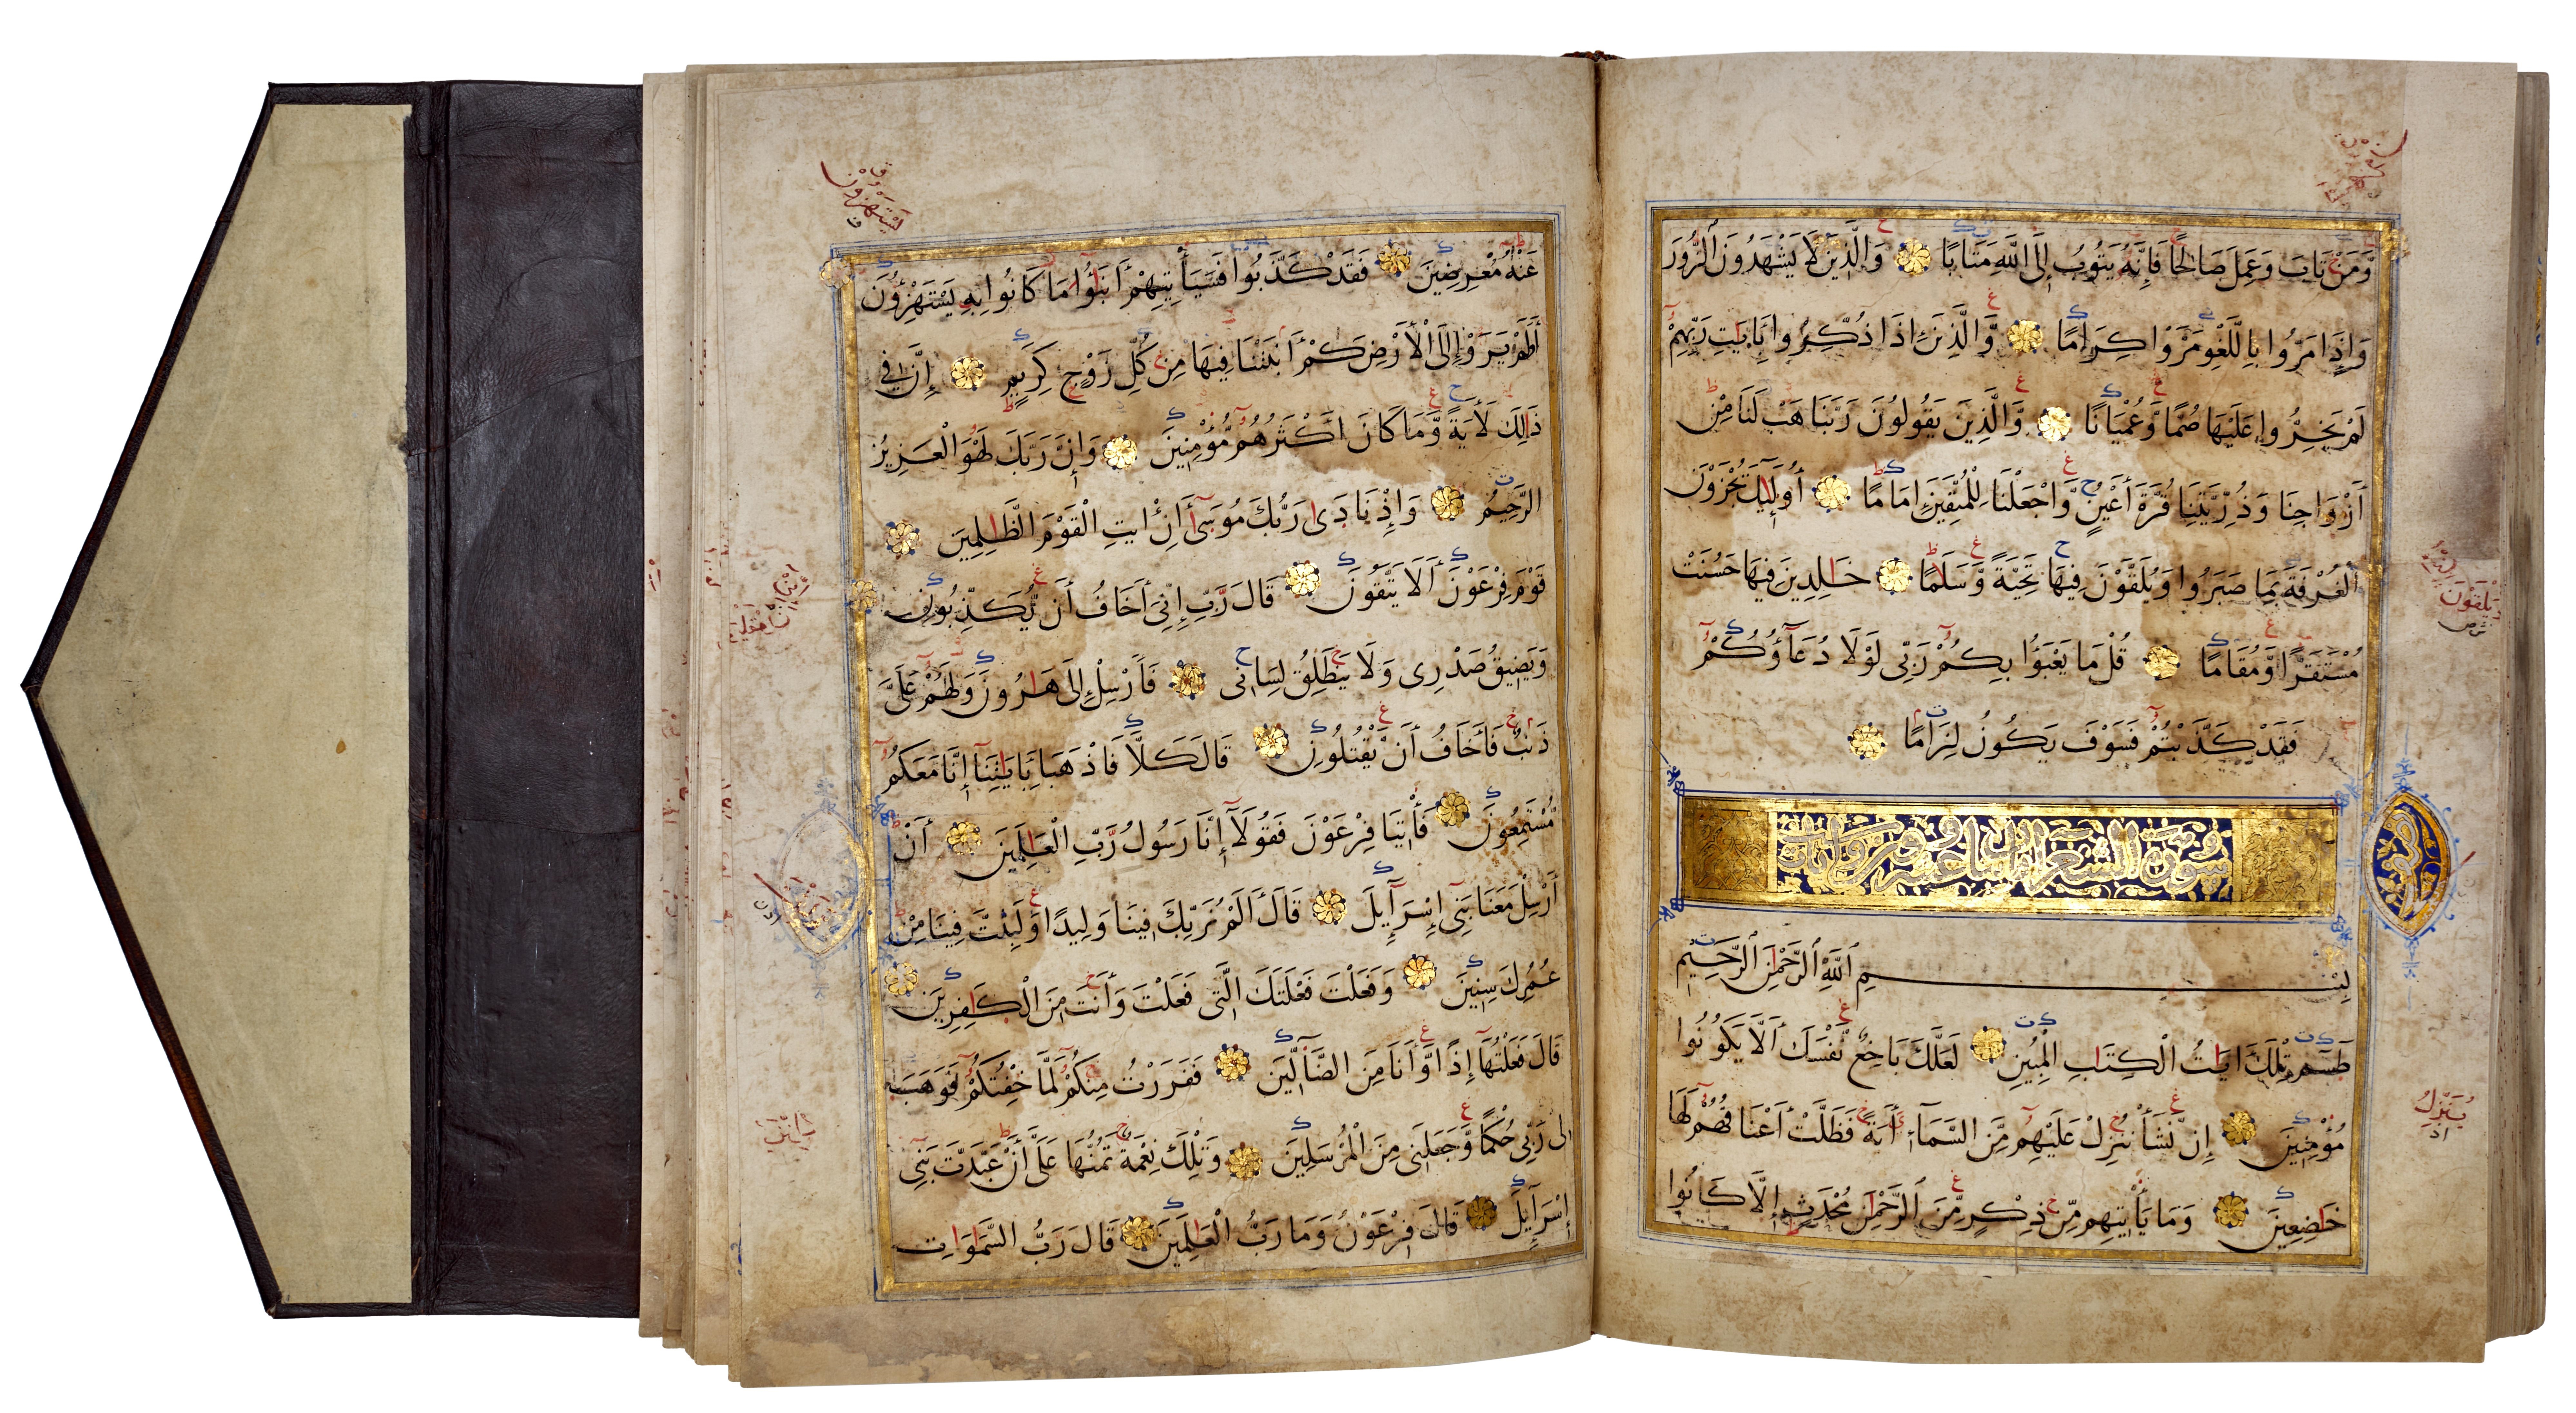 وَمَنْ تَابَ وَعَمِلَ صَالِحًا فَإِنَّهُ يَتُوبُ إِلَى اللَّهِ مَتَابًا وَالَّذِينَ لَا يَشْهَدُونَ الزُّورَ
وَإِذَا مَرُّوا بِاللَّغْوِ مَرُّوا كِرَامًا وَّالَّذِينَ إِذَا ذُكِّرُوا بِايٰتِ رَبِّهِمْ
لَمْ يَخِرُّوا عَلَيْهَا صُمًّا وَّعُمْيَانًا وَّالَّذِينَ يَقُولُونَ رَبَّنَا هَبْ لَنَا مِنْ
أَزْوَاجِنَا وَذُرِّيّٰتِنَا قُرَّةَ أَعْيُنٍ وَّاجْعَلْنَا لِلْمُتَّقِينَ إِمَامًا أُولٰئِكَ يُجْزَوْنَ
الْغُرْفَةَ بِمَا صَبَرُوا وَيُلَقَّوْنَ فِيهَا تَحِيَّةً وَّسَلٰمًا خٰلِدِينَ فِيهَا حَسُنَتْ
مُسْتَقَرًّا وَّمُقَامًا قُلْ مَا يَعْبَؤُا بِكُمْ رَبِّي لَوْلَا دُعَآؤُكُمْ
فَقَدْ كَذَّبْتُمْ فَسَوْفَ يَكُونُ لِزَامًا
سورة الشعراء مائتان وعشرون و آيات
بِسْمِ اللَّهِ الرَّحْمٰنِ الرَّحِيمِ
طٓسٓمٓ تِلْكَ ايٰتُ الْكِتٰبِ الْمُبِينِ لَعَلَّكَ بَاخِعٌ نَّفْسَكَ أَلَّا يَكُونُوا
مُؤْمِنِينَ إِن نَّشَأْ نُنَزِّلْ عَلَيْهِم مِّنَ السَّمَآءِ ءَايَةً فَظَلَّتْ أَعْنَاقُهُمْ لَهَا
خٰضِعِينَ وَمَا يَأْتِيهِم مِّن ذِكْرٍ مِّنَ الرَّحْمٰنِ مُحْدَثٍ إِلَّا كَانُوا
يُلَقَّوْنَ
يُنَزِّلُ
عَنْهُ مُعْرِضِينَ فَقَدْ كَذَّبُوا فَسَيَأْتِيهِمْ أَنْبٰٓؤُا مَا كَانُوا بِهِ يَسْتَهْزِؤُنَ
أَوَلَمْ يَرَوْا إِلَى الْأَرْضِ كَمْ أَنْبَتْنَا فِيهَا مِن كُلِّ زَوْجٍ كَرِيمٍ إِنَّ فِي
ذٰلِكَ لَايَةً وَّمَا كَانَ أَكْثَرُهُم مُّؤْمِنِينَ وَإِنَّ رَبَّكَ لَهُوَ الْعَزِيزُ
الرَّحِيمُ وَإِذْ نَادٰى رَبُّكَ مُوسٰى أَنِ ائْتِ الْقَوْمَ الظّٰلِمِينَ
قَوْمَ فِرْعَوْنَ أَلَا يَتَّقُونَ قَالَ رَبِّ إِنِّي أَخَافُ أَن يُّكَذِّبُونِ
وَيَضِيقُ صَدْرِى وَلَا يَنطَلِقُ لِسَانِى فَأَرْسِلْ إِلٰى هٰرُونَ وَلَهُمْ عَلَىَّ
ذَنْبٌ فَأَخَافُ أَن يَّقْتُلُونِ قَالَ كَلَّا فَاذْهَبَا بِايٰتِنَآ إِنَّا مَعَكُم
مُّسْتَمِعُونَ فَأْتِيَا فِرْعَوْنَ فَقُولَآ إِنَّا رَسُولُ رَبِّ الْعٰلَمِينَ أَنْ
أَرْسِلْ مَعَنَا بَنِى إِسْرَآءِيلَ قَالَ أَلَمْ نُرَبِّكَ فِينَا وَلِيدًا وَّلَبِثْتَ فِينَا مِنْ
عُمُرِكَ سِنِينَ وَفَعَلْتَ فَعْلَتَكَ الَّتِى فَعَلْتَ وَأَنتَ مِنَ الْكٰفِرِينَ
قَالَ فَعَلْتُهَآ إِذًا وَّأَنَا مِنَ الضَّآلِّينَ فَفَرَرْتُ مِنكُمْ لَمَّا خِفْتُكُمْ فَوَهَبَ
لِى رَبِّى حُكْمًا وَّجَعَلَنِى مِنَ الْمُرْسَلِينَ وَتِلْكَ نِعْمَةٌ تَمُنُّهَا عَلَىَّ أَنْ عَبَّدتَّ بَنِى
إِسْرَآءِيلَ قَالَ فِرْعَوْنُ وَمَا رَبُّ الْعٰلَمِينَ قَالَ رَبُّ السَّمٰوٰتِ
يَسْتَهْزِؤُنَ